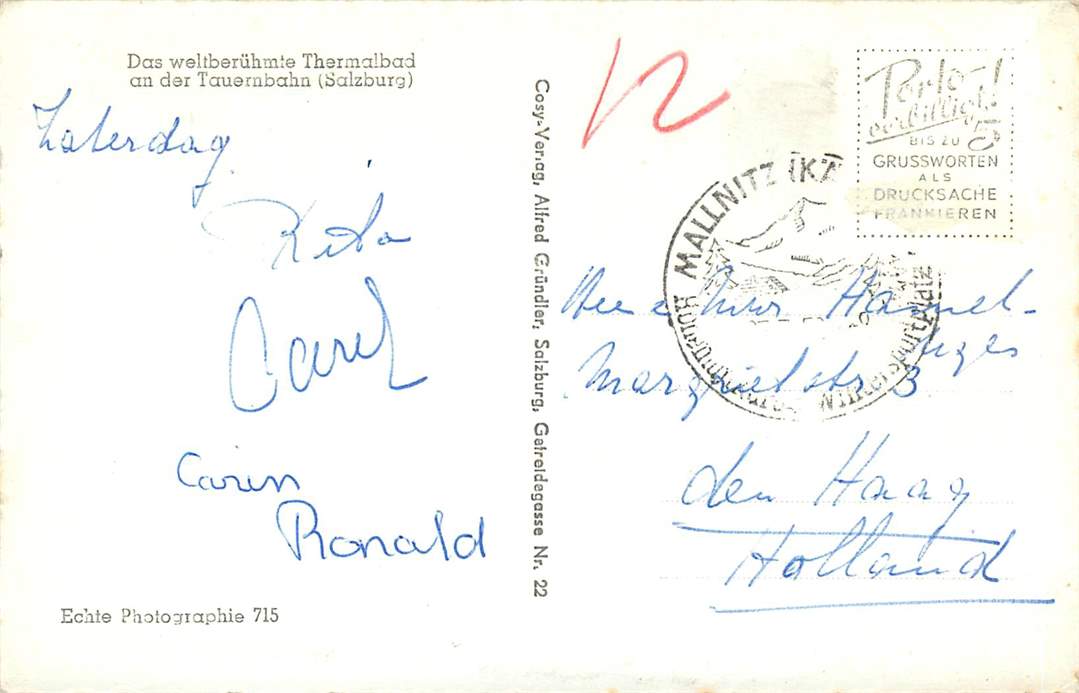 Das weltberühmte Thermalbad
an der Tauernbahn (Salzburg)
Zaterdag
Rita
Carel
Carin
Ronald
Echte Photographie 715
Cosy-Verlag, Alfred Gründler, Salzburg, Getreidegasse Nr. 22
Porto-
verbilligt!
5
BIS ZU
GRUSSWORTEN
ALS
DRUCKSACHE
FRANKIEREN
MALLNITZ (K
Wintersportplatz
Hammel-
Margrietstr 3
den Haag
Holland